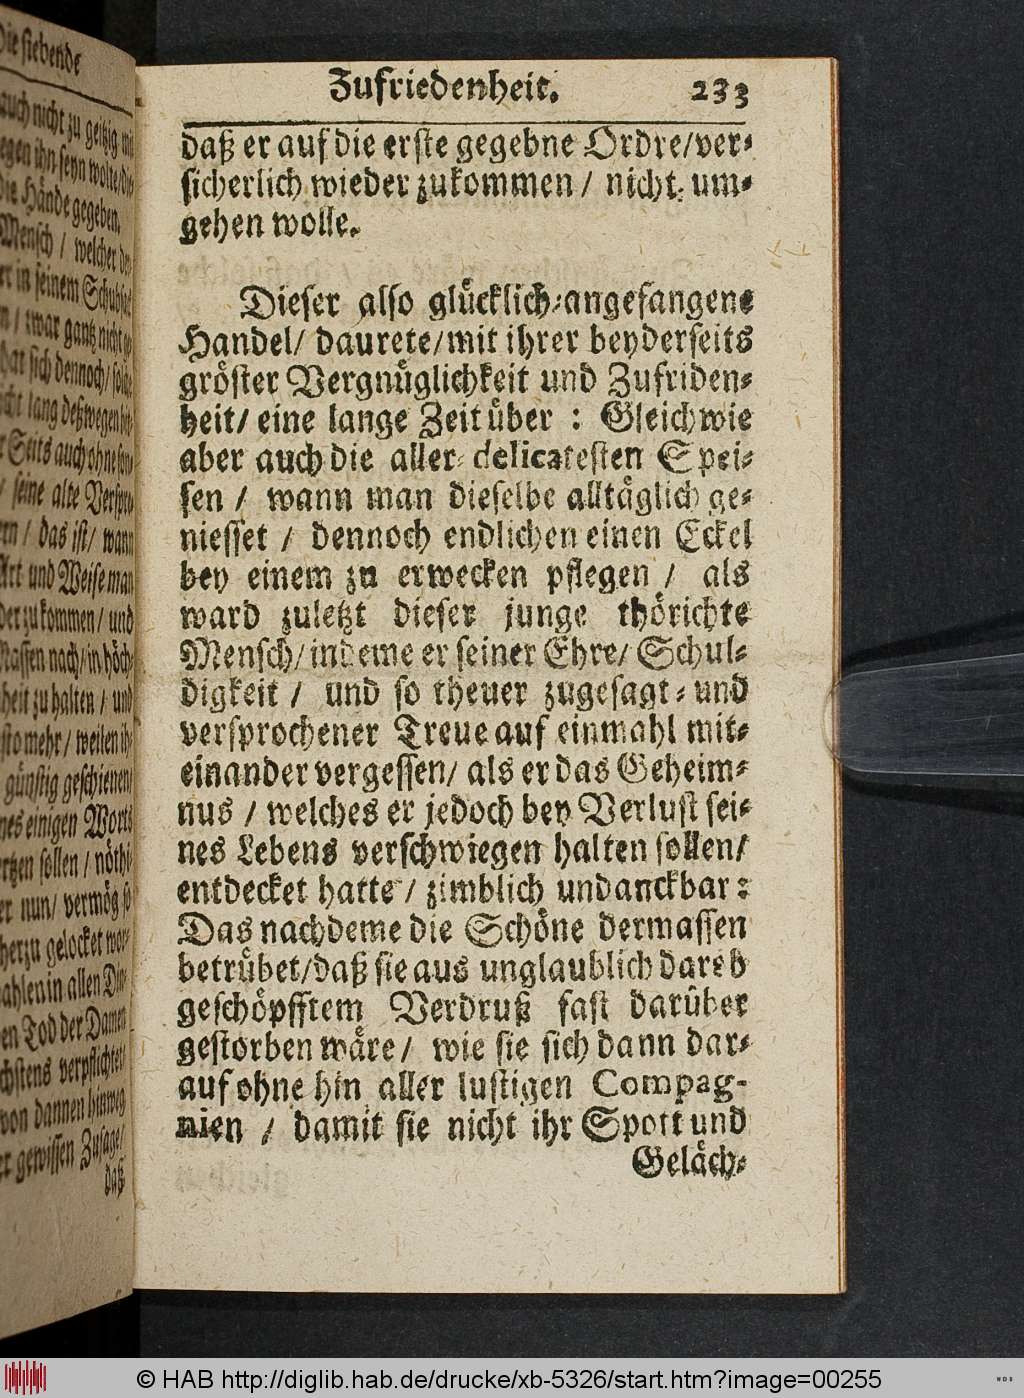 Die siebende
auch nicht zu geitzig mit
gegen ihn seyn wolte/die
die Hände gegeben.
Mensch / welcher
er in seinem
n / zwar gantz nicht
hat sich dennoch/
cht lang deßwegen
Seits auch ohne
/ seine alte
/ das ist/ wann
Art und Weise man
der zukommen/ und
Massen nach/ in höch-
heit zu halten / und
sto mehr / weilen ih-
günstig geschienen/
nes einigen Worts
sollen / nöthi-
er nun/ vermög so
herzu gelocket wor-
in allen Din-
en Tod der Damen
chstens verpflichtet/
von dannen hinweg
er gewissen Zusage/
daß
Zufriedenheit. 233
daß er auf die erste gegebne Ordre/ver-
sicherlich wieder zukommen / nicht um-
gehen wolle.
Dieser also glücklich-angefangene
Handel/ daurete/mit ihrer beyderseits
gröster Vergnüglichkeit und Zufriden-
heit/ eine lange Zeit über : Gleichwie
aber auch die aller-delicatesten Spei-
sen / wann man dieselbe alltäglich ge-
niesset / dennoch endlichen einen Eckel
bey einem zu erwecken pflegen / als
ward zuletzt dieser junge thörichte
Mensch/indeme er seiner Ehre/ Schul-
digkeit / und so theuer zugesagt-und
versprochener Treue auf einmahl mit-
einander vergessen/ als er das Geheim-
nus / welches er jedoch bey Verlust sei-
nes Lebens verschwiegen halten sollen/
entdecket hatte / zimblich undanckbar:
Das nachdeme die Schöne dermassen
betrübet/daß sie aus unglaublich dareb
geschöpfftem Verdruß fast darüber
gestorben wäre/ wie sie sich dann dar-
auf ohne hin aller lustigen Compag-
nien / damit sie nicht ihr Spott und
Geläch-
© HAB http://diglib.hab.de/drucke/xb-5326/start.htm?image=00255